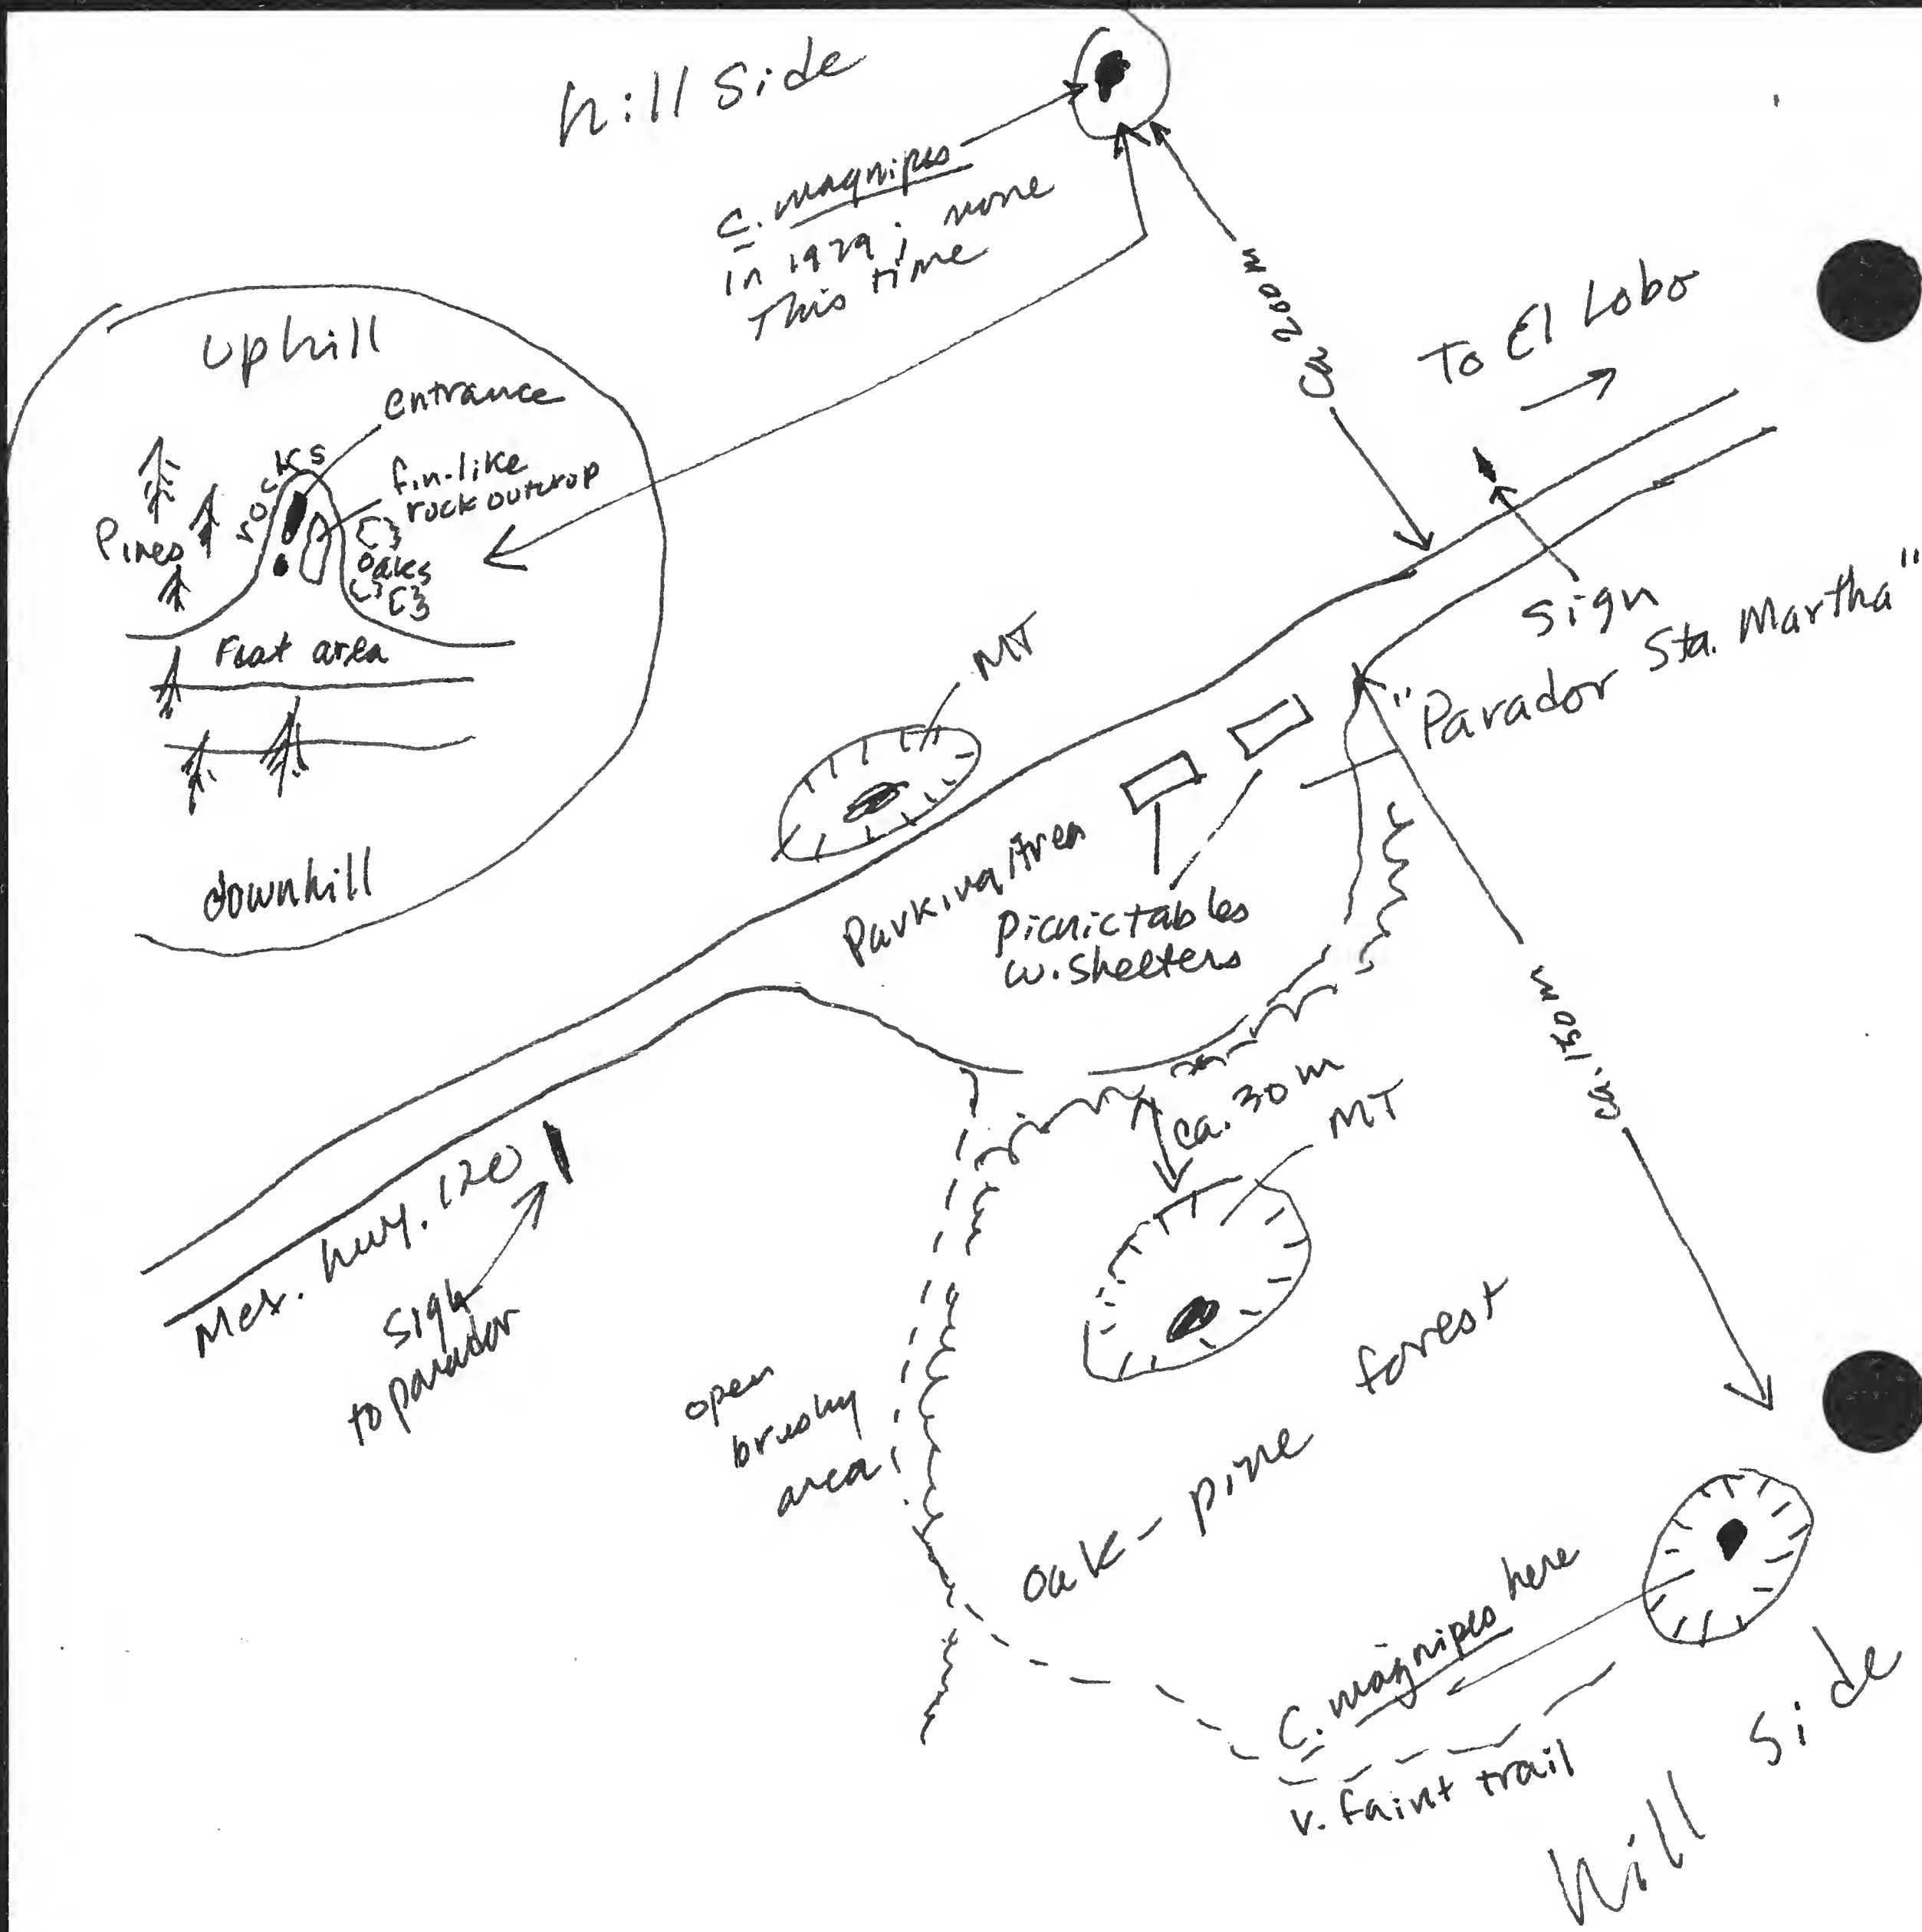 hill Side
C. magnipes
in 1979; none
This time
ca. 200 m
To El Lobo
uphill
entrance
fin-like
rock outcrop
Pines
oaks
Flat area
downhill
MT
Sign
"Parador Sta. Martha"
Parking Area
Picnic tables
w. shelters
ca. 150 m
ca. 30 m
MT
Mex. hwy. 120
sign
to parador
open
brushy
area
oak-pine forest
C. magnipes here
v. faint trail
hill side